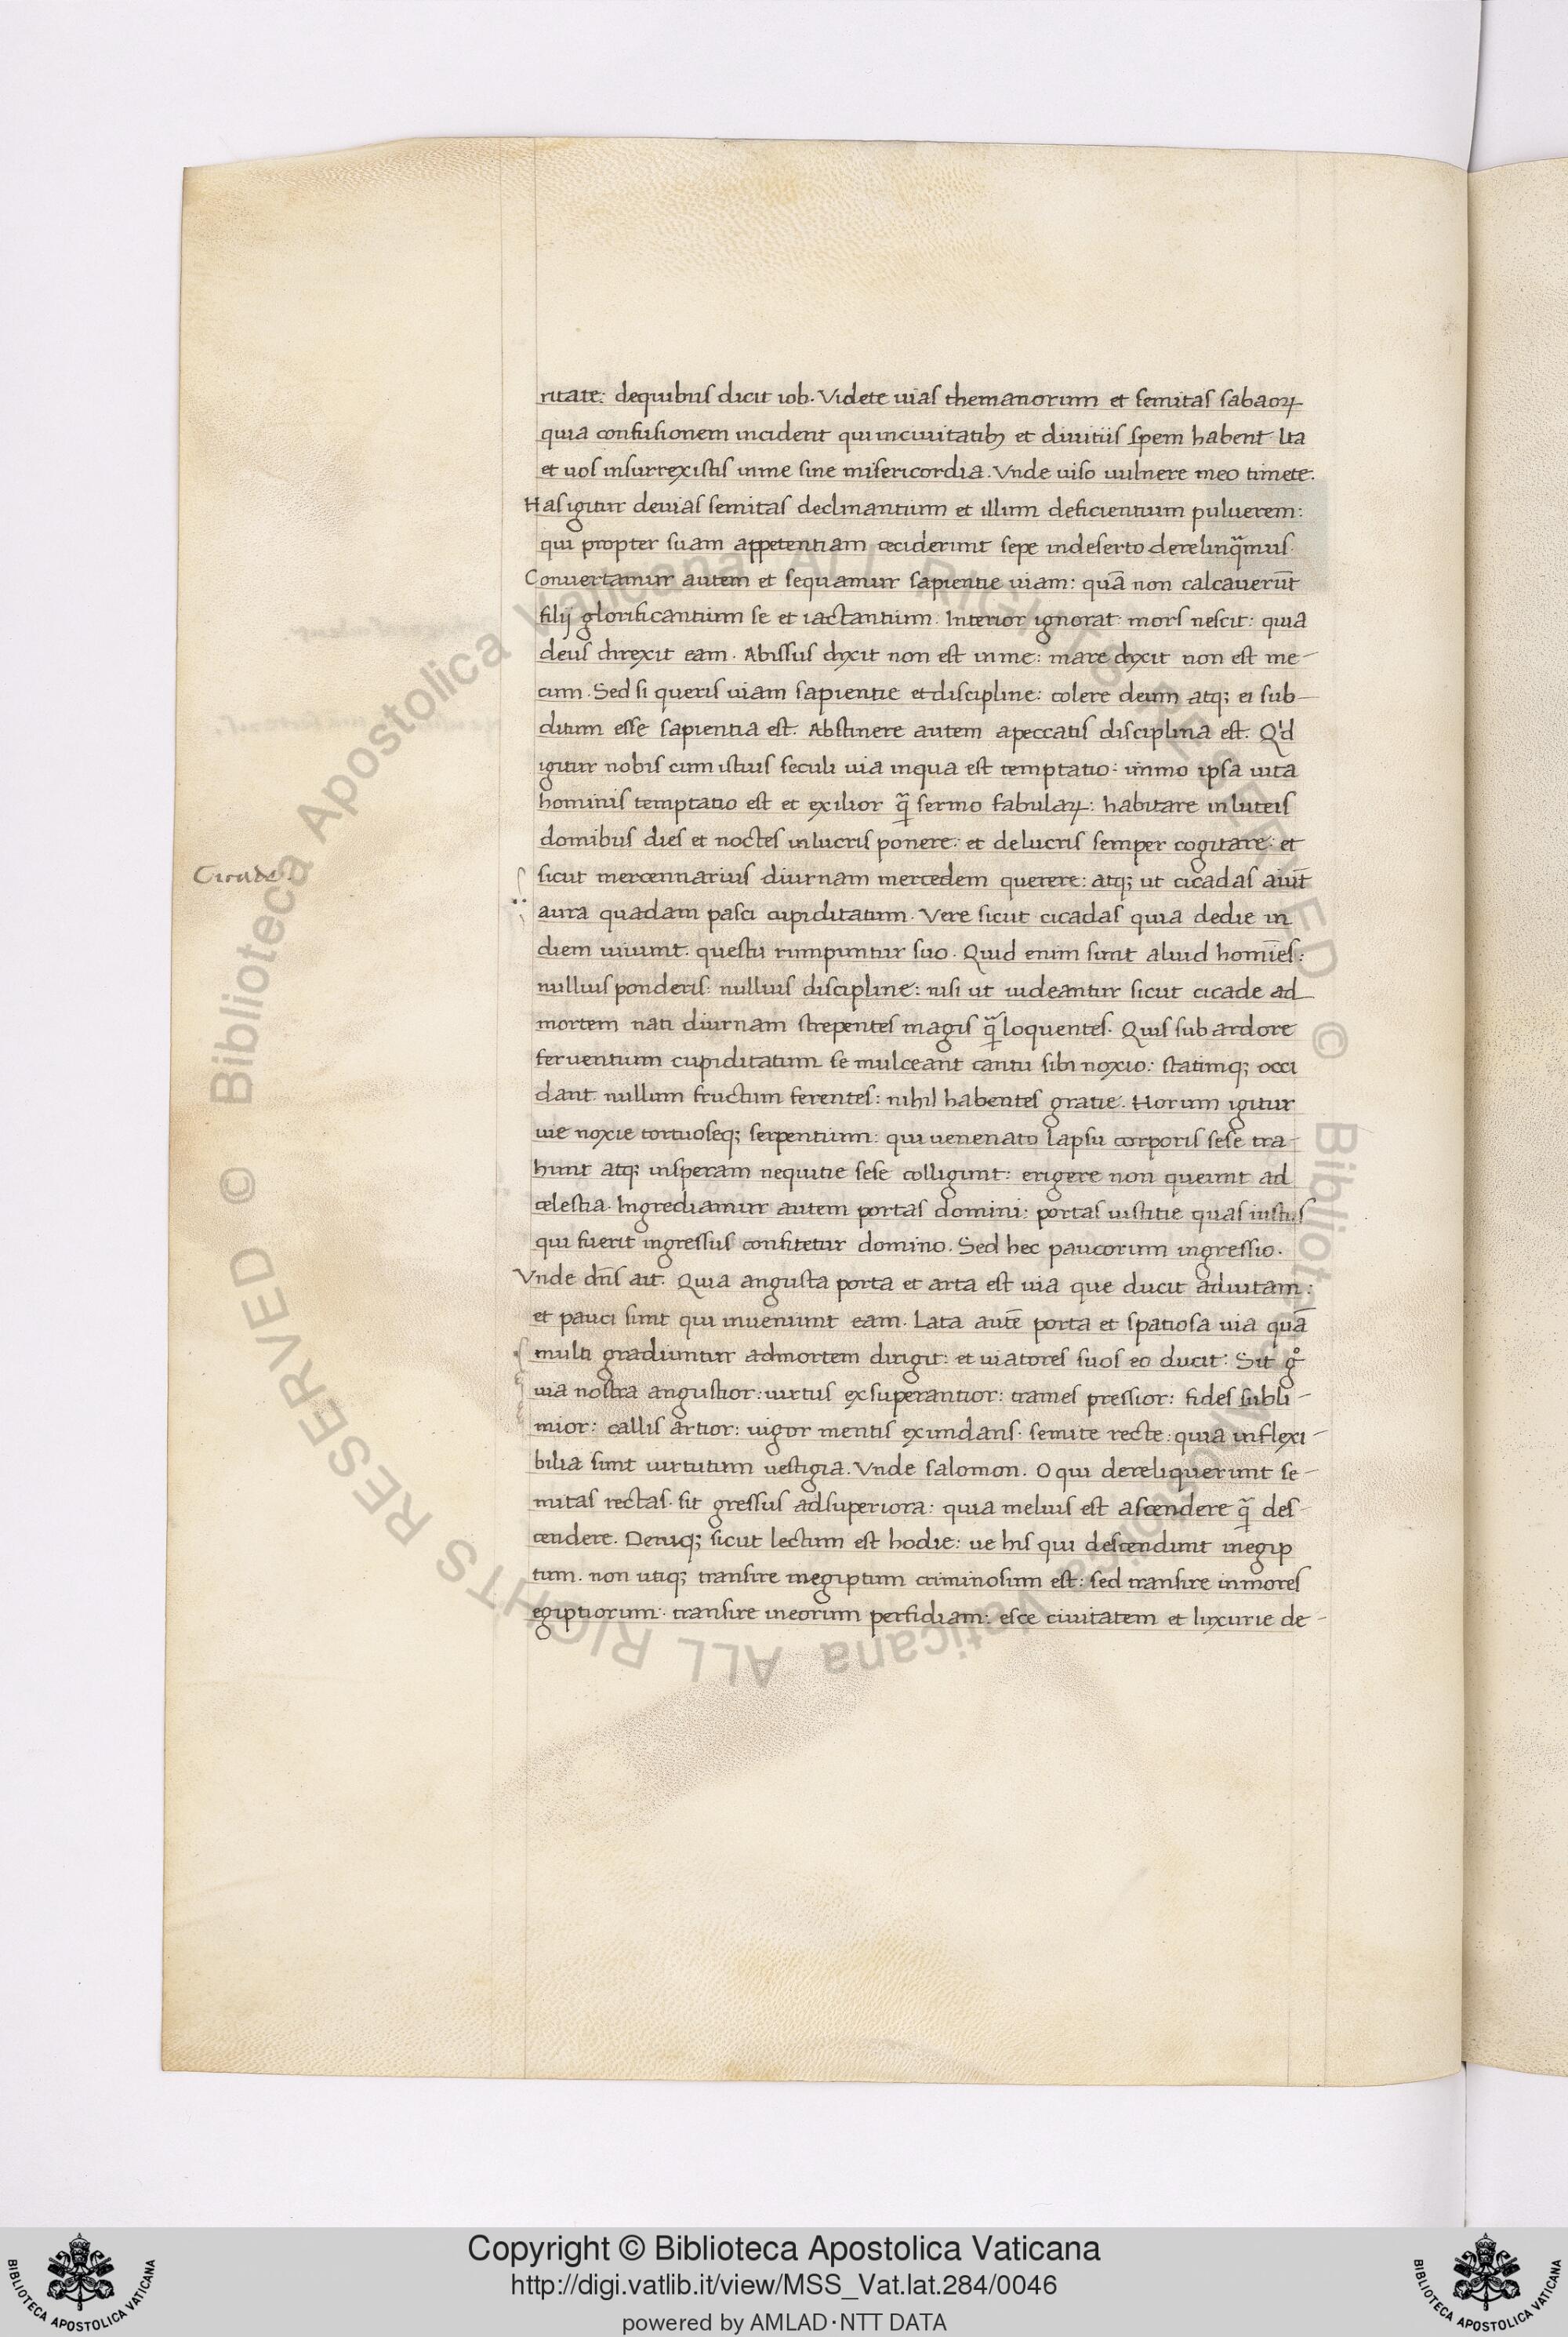 ritate: dequibus dicit iob. Videte uias themanorum et semitas sabaoꝝ
quia confusionem incident qui inciuitatibꝫ et diuitiis spem habent. Ita
et uos insurrexistis inme sine misericordia. Vnde uiso uulnere meo timete.
Has igitur deuias semitas declinantium et illum deficientium puluerem:
qui propter suam appetentiam ceciderunt sepe indeserto derelinqͣmus.
Conuertamur autem et sequamur sapientie uiam: quā non calcauerūt
filij glorificantium se et iactantium. Interior ignorat: mors nescit: quia
deus direxit eam. Abissus dixit non est inme: mare dixit non est me-
cum. Sed si queris uiam sapientie et discipline: colere deum atq; ei sub-
ditum esse sapientia est. Abstinere autem apeccatis disciplina est. Q'd
igitur nobis cum istius seculi uia inqua est temptatio: immo ipsa uita
hominis temptatio est et exilior qͣ sermo fabulaꝝ: habitare inluteis
domibus dies et noctes inlucris ponere: et delucris semper cogitare: et
sicut mercennarius diurnam mercedem querere: atq; ut cicadas aiūt
Cicade.
aura quadam pasci cupiditatum. Vere sicut cicadas quia dedie in
diem uiuunt. questu rumpuntur suo. Quid enim sunt aliud homīes:
nullius ponderis: nullius discipline: nisi ut uideantur sicut cicade ad
mortem nati diurnam strepentes magis qͣ loquentes. Quis sub ardore
feruentium cupiditatum se mulceant cantu sibi noxio: statimq; occi
dant. nullum fructum ferentes: nihil habentes gratie. Horum igitur
uie noxie tortuoseq; serpentium: qui uenenato lapsu corporis sese tra-
hunt atq; insperam nequitie sese colligunt: erigere non queunt ad
celestia. Ingrediamur autem portas domini: portas iustitie quas iustus
qui fuerit ingressus confitetur domino. Sed hec paucorum ingressio.
Vnde dn̄s ait. Quia angusta porta et arta est uia que ducit aduitam:
et pauci sunt qui inueniunt eam. Lata autē porta et spatiosa uia quā
multi gradiuntur admortem dirigit: et uiatores suos eo ducit: Sit gͦ
uia nostra angustior: uirtus exsuperantior: trames pressior: fides subli-
mior: callis artior: uigor mentis exundans. semite recte: quia inflexi-
bilia sunt uirtutum uestigia. Vnde salomon. O qui dereliquerunt se-
mitas rectas. sit gressus adsuperiora: quia melius est ascendere qͣ des-
cendere. Deniq; sicut lectum est hodie: ue his qui descendunt inegip
tum. non utiq; transire inegiptum criminosum est: sed transire inmores
egiptiorum: transire ineorum perfidiam: esce ciuitatem et luxurie de-
Copyright © Biblioteca Apostolica Vaticana
http://digi.vatlib.it/view/MSS_Vat.lat.284/0046
powered by AMLAD·NTT DATA
BIBLIOTECA APOSTOLICA VATICANA
BIBLIOTECA APOSTOLICA VATICANA
© Biblioteca Apostolica Vaticana ALL RIGHTS RESERVED © Biblioteca Apostolica Vaticana ALL RIGHTS RESERVED